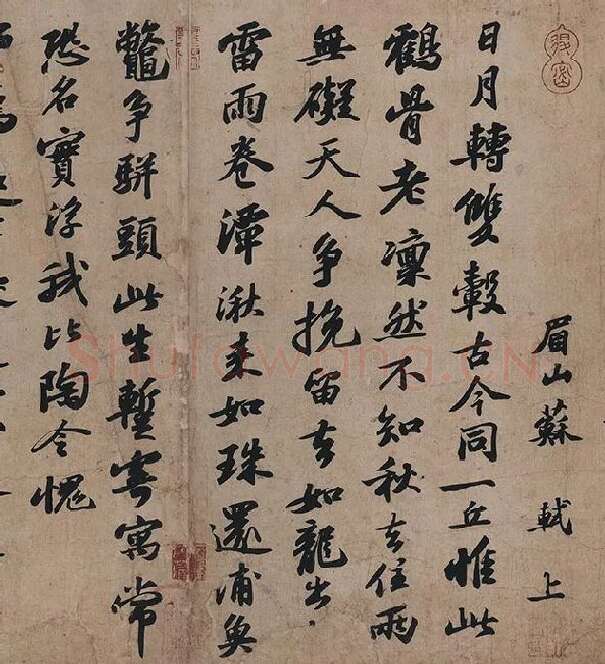 眉山蘇軾上
日月轉雙轂古今同一丘惟此
鶴骨老凜然不知秋去住兩
無礙天人争挽留去如龍出
雷雨卷潭湫来如珠還浦魚
鼈争駢頭此生暫寄寓常
恐名實浮我比陶令愧
Shufawang.CN